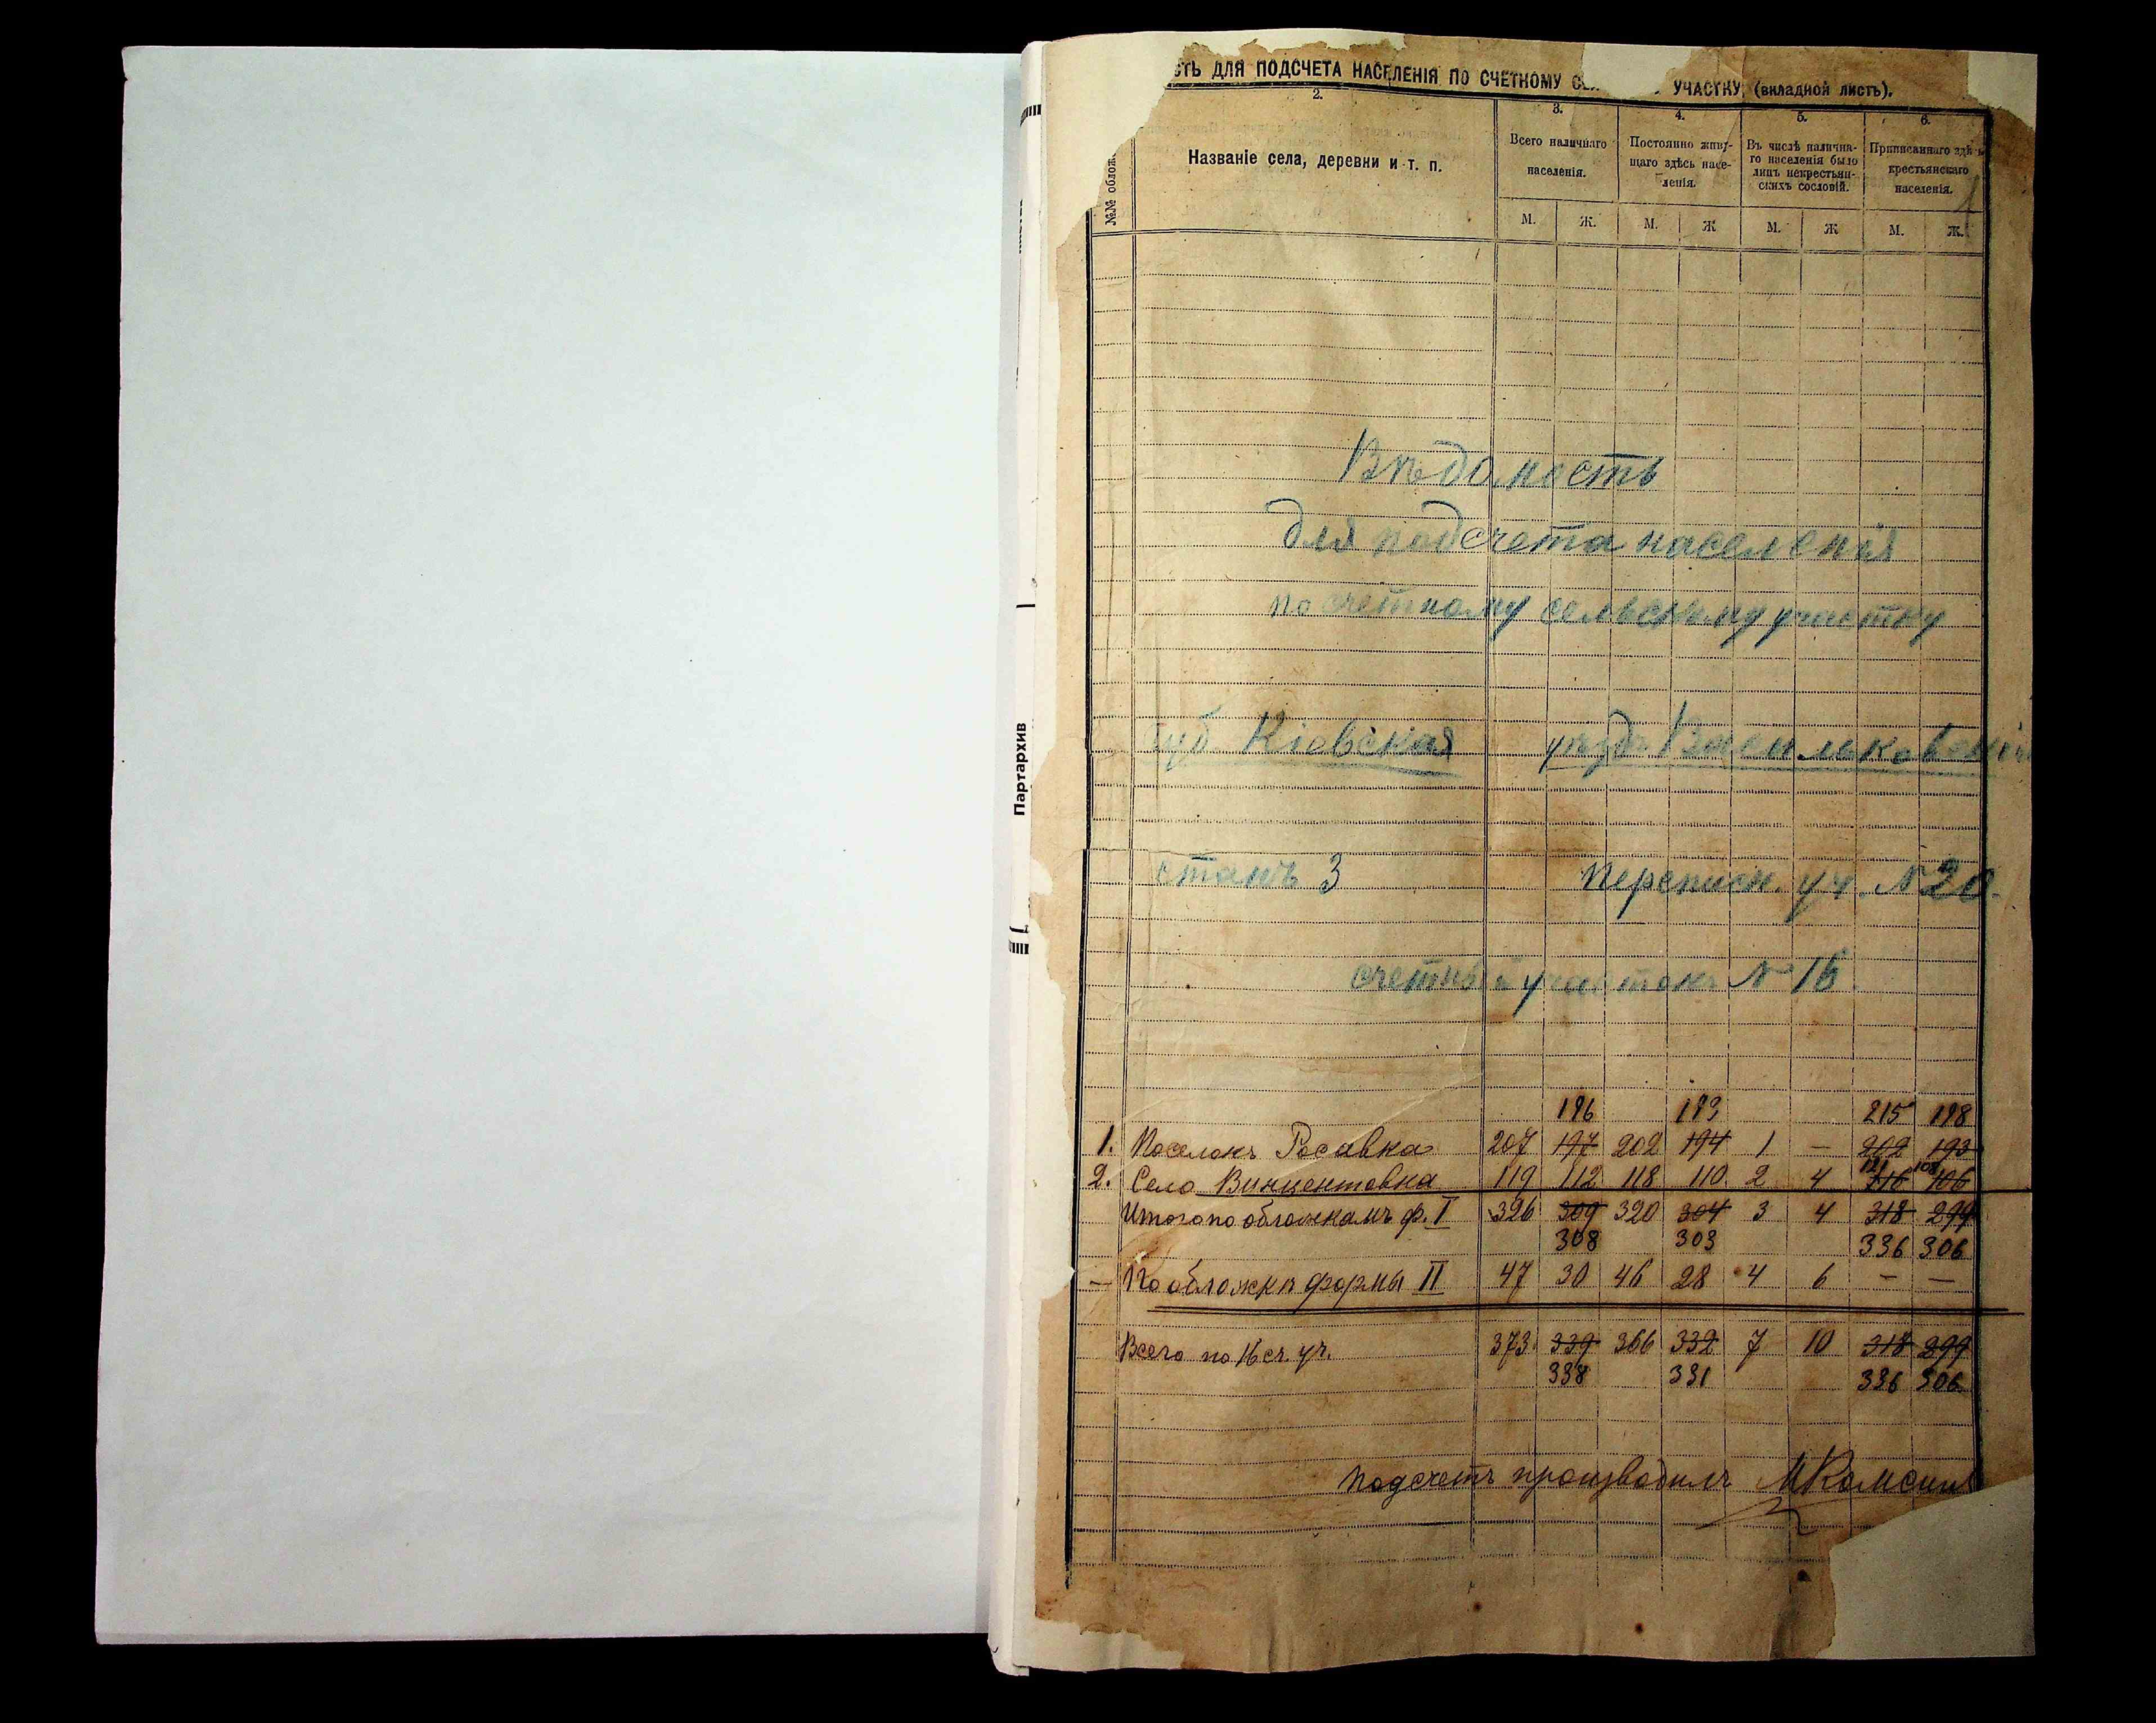 СТЬ ДЛЯ ПОДСЧЕТА НАСЕЛЕНІЯ ПО СЧЕТНОМУ УЧАСТКУ (вкладной листъ).
2. 3. 4. 5. 6.
№№ облож
Названіе села, деревни и т. п.
Всего наличнаго населенія.
Постоянно живущаго здѣсь населенія.
Въ числѣ наличнаго населенія было лицъ некрестьянскихъ сословій.
Приписаннаго здѣ крестьянскаго населенія.
М. Ж. М. Ж М. Ж М. Ж.
Вѣдомость
для подсчета населенія
по счетному сельскому участку
губ. Кіевская уѣздъ Васильковскій
станъ 3 Переписн. уч. № 20.
счетный участокъ № 16
196 193 215 198
1. Поселокъ Росавка 207 197 202 194 1 — 202 193
121 108
2. Село Винцентовка 119 112 118 110 2 4 116 106
Итого по обложкамъ ф. I 326 309 320 304 3 4 318 299
308 303 336 306
— По обложкѣ формы II 47 30 46 28 4 6 — —
Всего по 16 сч. уч. 373 339 366 332 7 10 318 299
338 331 336 306
Подсчетъ производилъ
Партархив